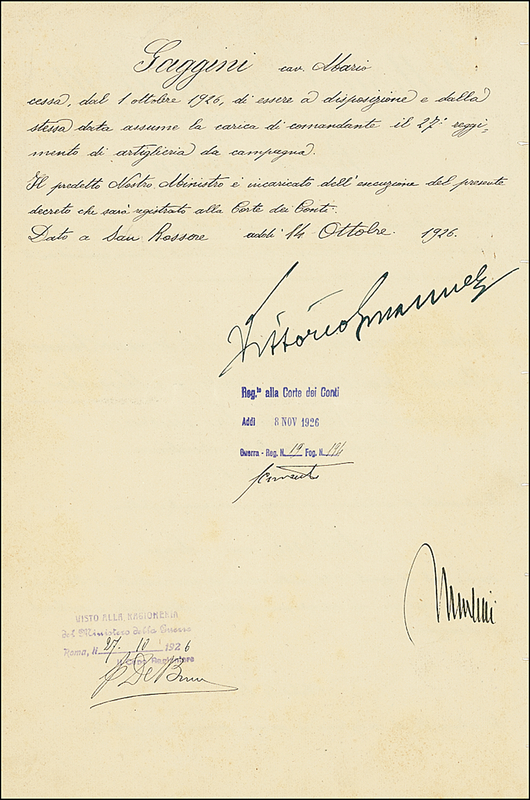 Gaggini cav. Mario
cessa, dal 1 ottobre 1926, di essere a disposizione e dalla
stessa data assume la carica di comandante il 27° reggi-
mento di artiglieria da campagna.
Il predetto Nostro Ministro è incaricato dell'esecuzione del presente
decreto che sarà registrato alla Corte dei Conti.
Dato a San Rossore addì 14 Ottobre 1926.
Vittorio Emanuele
Reg.to alla Corte dei Conti
Addì 8 NOV 1926
Guerra - Reg. N. 19 Fog. N. 194
Mussolini
VISTO ALLA RAGIONERIA
del Ministero della Guerra
Roma, li 27. 10 1926
Il Capo Ragioniere